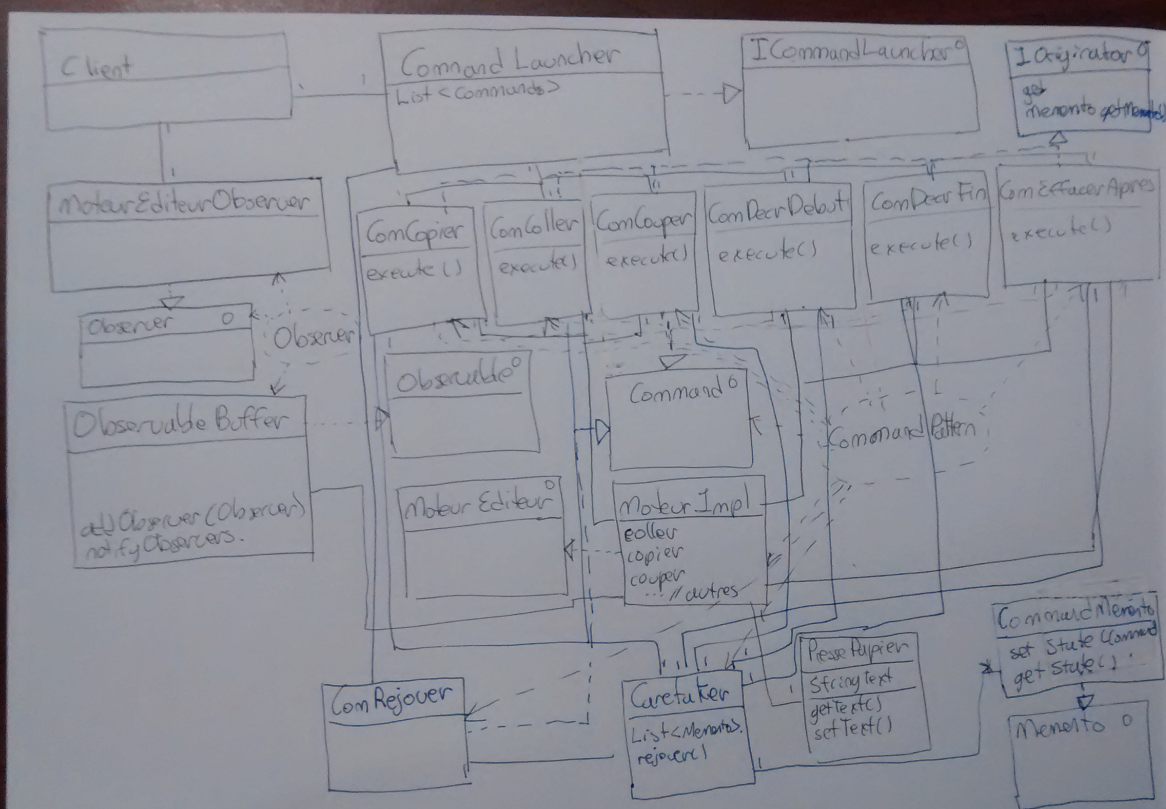 Client
Command Launcher
List<Commands>
ICommandLauncher
IOriginator
get
memento getMemento()
MoteurEditeurObserver
ComCopier
execute()
ComColler
execute()
ComCouper
execute()
ComDecrDebut
execute()
ComDecrFin
execute()
ComEffacerApres
execute()
Observer
Observer
Observable
Command
Observable Buffer
addObserver(Observer)
notifyObservers.
Command Patten
Moteur Editeur
Moteur Impl
coller
copier
couper
... //autres
ComRejouer
Caretaker
List<Memento>.
rejouer()
PressePapier
StringText
getText()
setText()
CommandMemento
set State(Command
get State()
Memento